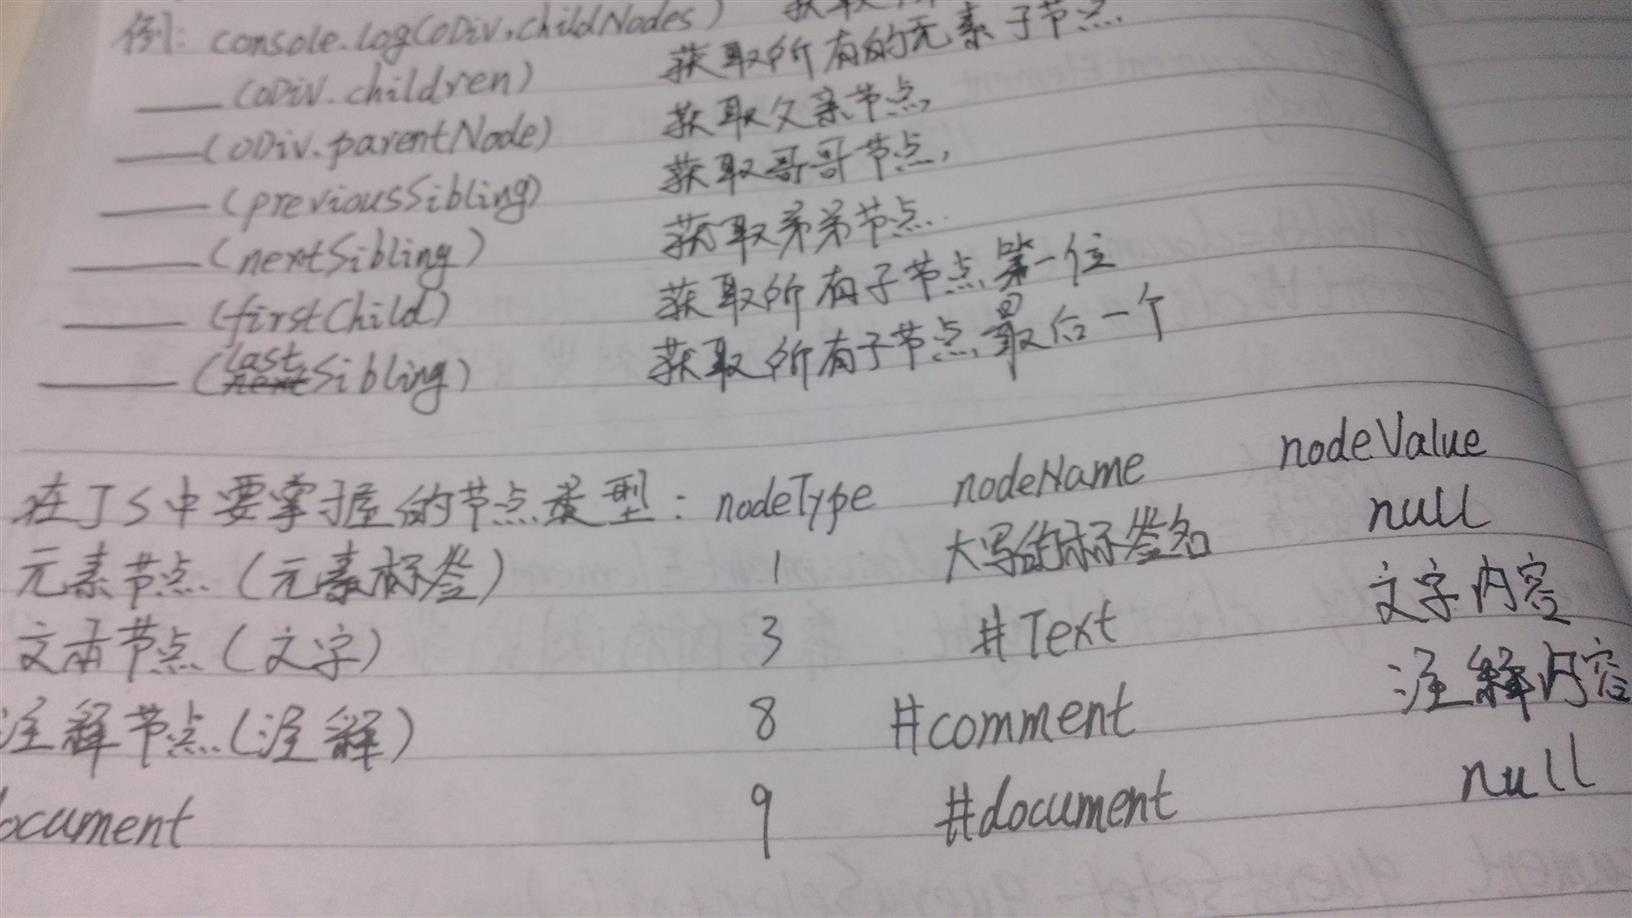 例: console.log(oDiv.childNodes) 获取
____(oDiv.children) 获取所有的元素子节点.
____(oDiv.parentNode) 获取父亲节点,
____(previousSibling) 获取哥哥节点,
____(nextSibling) 获取弟弟节点.
____(firstChild) 获取所有子节点第一位
____(lastSibling) 获取所有子节点最后一个
在JS中要掌握的节点类型: nodeType nodeName nodeValue
元素节点(元素标签) 1 大写的标签名 null
文本节点(文字) 3 #Text 文字内容
注释节点(注释) 8 #comment 注释内容
ocument 9 #document null